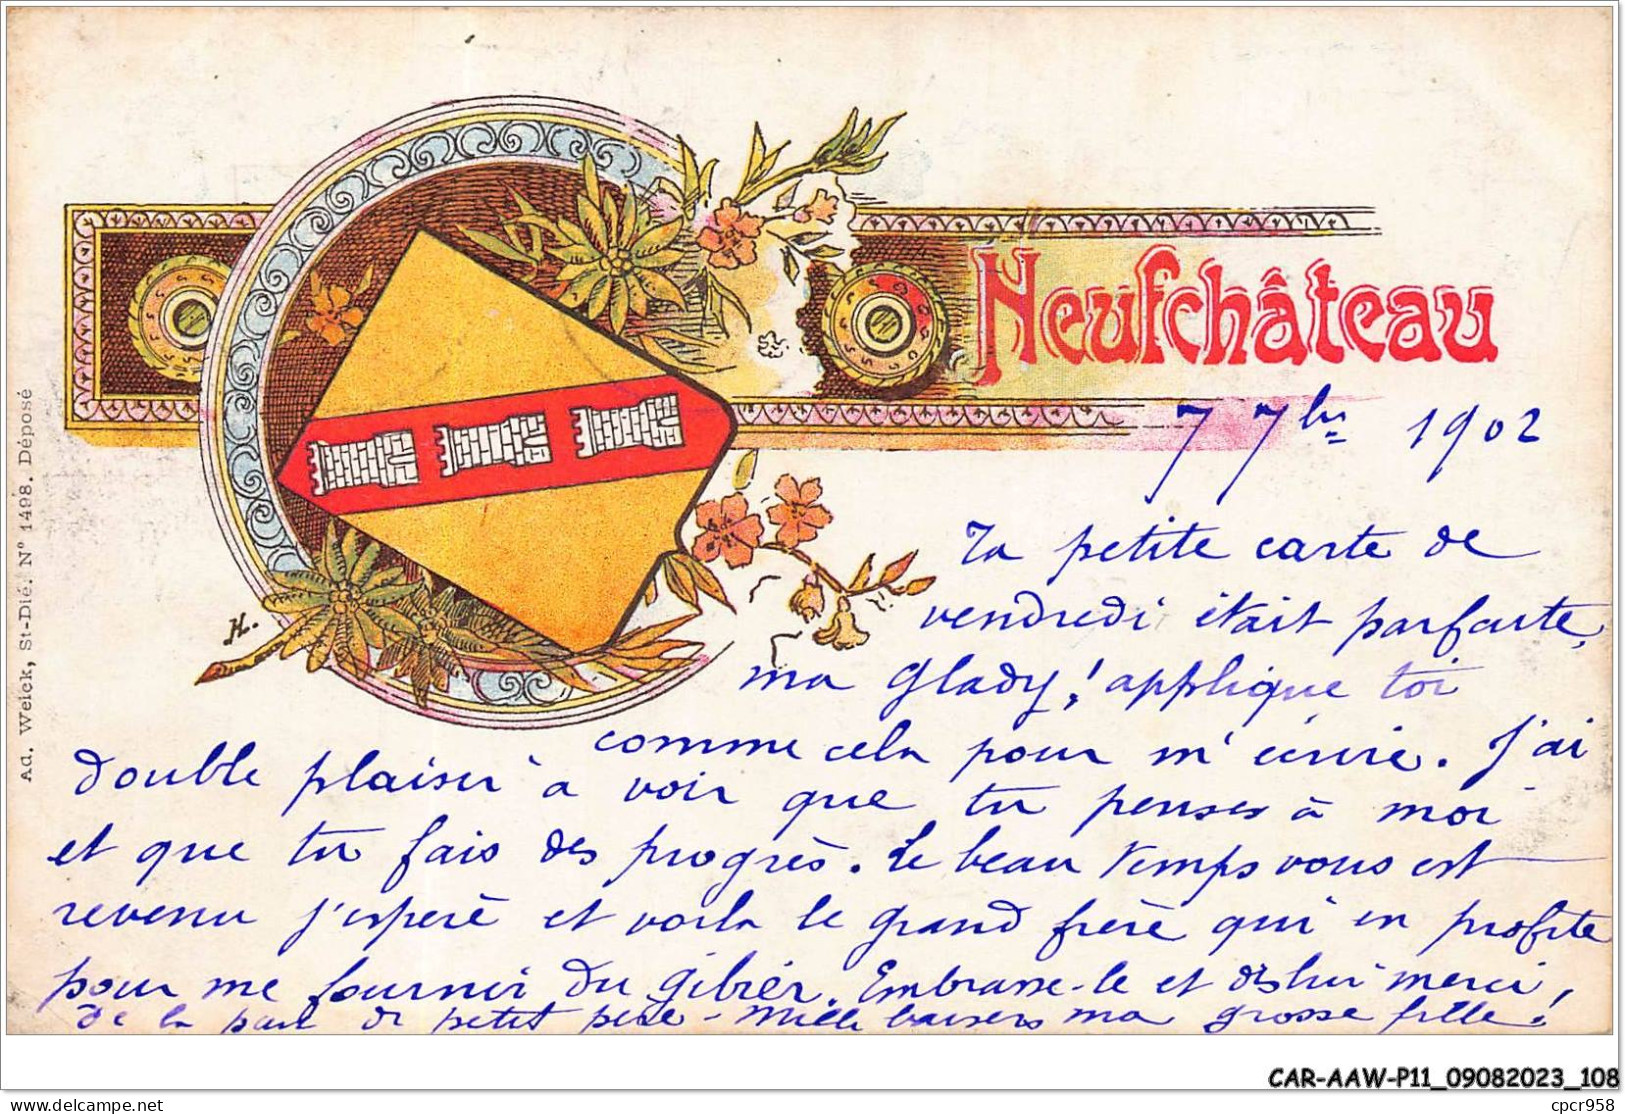 Neufchâteau
7 7bre 1902
Ta petite carte de
vendredi était parfaite,
ma Glady! applique toi
comme cela pour m'écrire. J'ai
double plaisir à voir que tu penses à moi
et que tu fais des progrès. Le beau temps vous est
revenu j'espère et voila le grand frère qui en profite
pour me fournir du gibier. Embrasse-le et dis lui merci,
de la part de petit père - Mille baisers ma grosse fille!
Ad. Weick, St-Dié. N° 1498. Déposé
H.
CAR-AAW-P11_09082023_108
delcampe.net
cpcr958